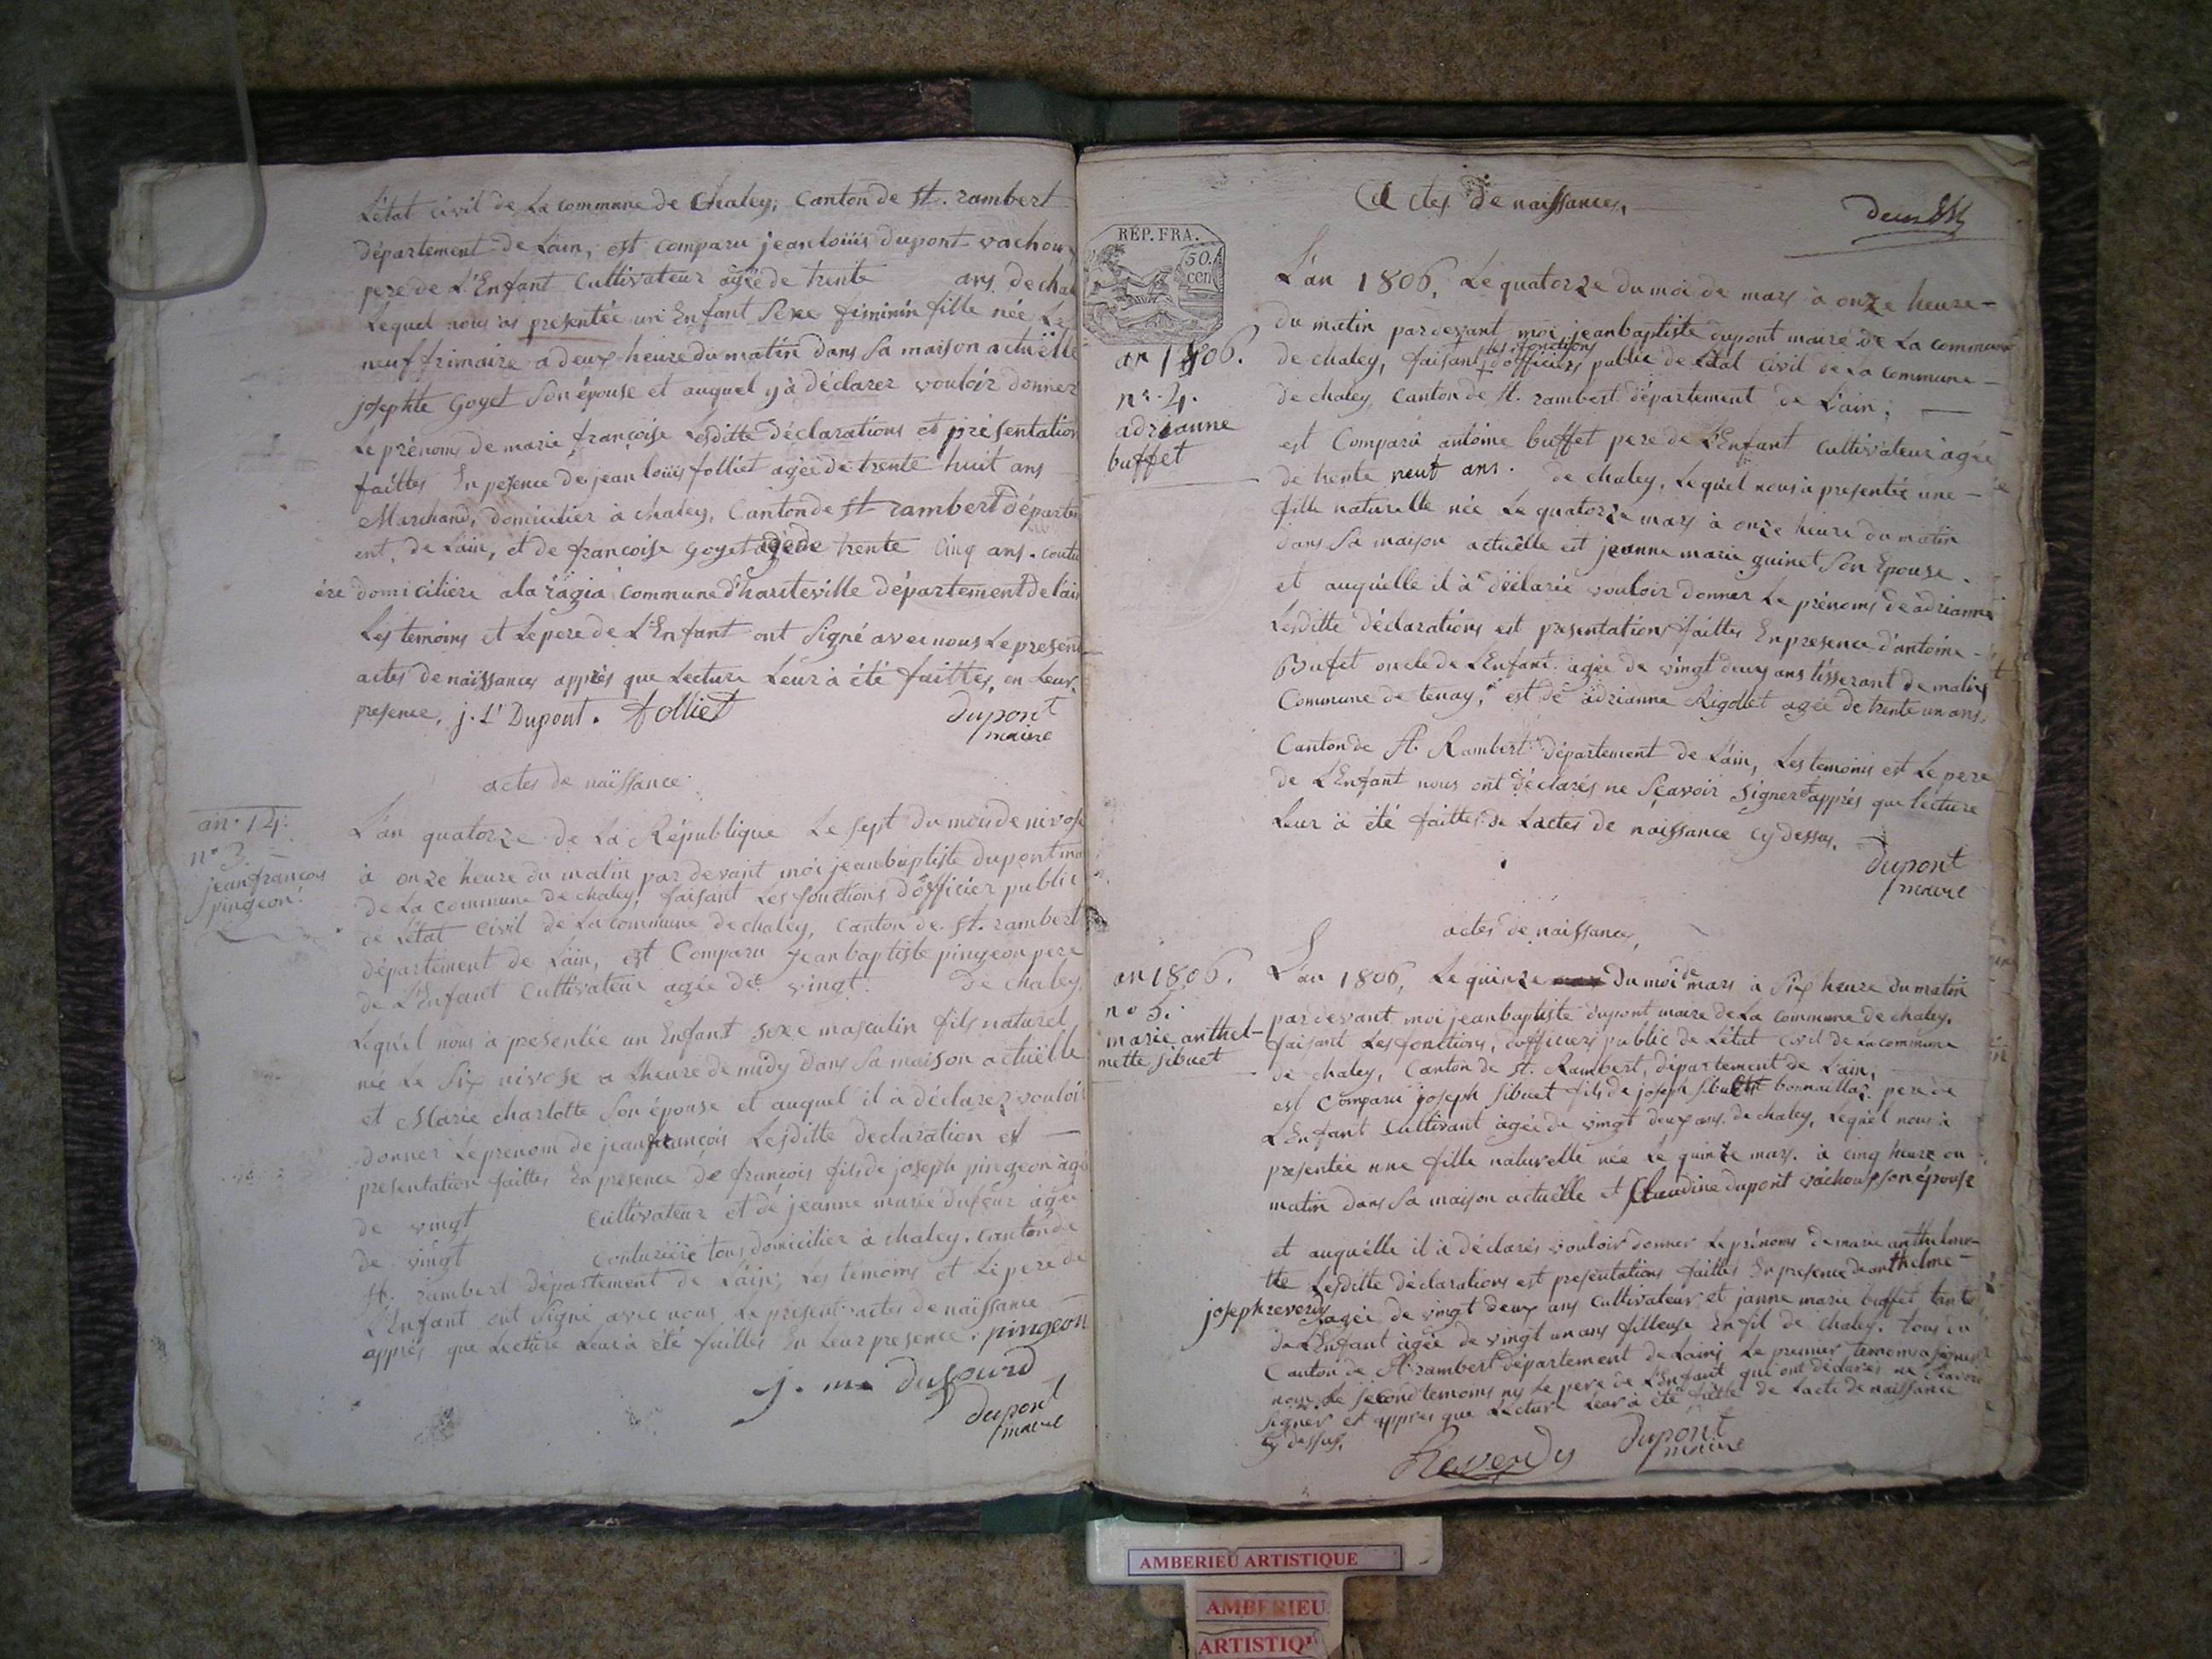 L'état Civil de La commune de Chaley, Canton de St. rambert
département de L'ain, est comparu jean loüis dupont vachoux
pere de L'Enfant Cultivateur agée de trente ans de chal
Lequel nous as presentée un Enfant Sexe féminin fille née Le
neuf frimaire a deux heure du matin dans Sa maison actuëlle
josephte Goyet Son épouse et auquel y à déclarer vouloir donner
Le prénoms de marie françoise Lesditte déclarations et présentation
faittes En pesence de jean loüis folliet agée de trente huit ans
Marchand, domicilier à chaley, Canton de St rambert départem
ent, de L'ain, et de françoise goyet agée de trente Cinq ans. coutu
ère domicilière a la ragia commune d'hauteville département de lain
Les temoins et Le pere de L'Enfant ont Signé avec nous Le present
actes de naissances apprès que Lecture Leur à été faittes, en Leur
presence, j. L' Dupont. folliet
dupont
maire
actes de naïssance.
an. 14.
n° 3.
jean françois
pingeon.
L'an quatorze de La République Le Sept du mois de nivose
à onze heure du matin par devant moi jean baptiste dupont ma
de La commune de chaley, faisant Les fonctions d'officier public
de L'état Civil de La commune de chaley, Canton de St. rambert
département de L'ain, est Comparu jean baptiste pingeon pere
de L'Enfant Cultivateur agée de vingt. de chaley,
Lequ'el nous à presentée un Enfant Sexe masculin fils naturel
née Le Six nivose a Lheure de midy dans Sa maison actuëlle
et Marie charlotte Son épouse et auquel il à déclarez vouloir
donner Le prenom de jean françois Lesditte declaration et
presentation faittes En presence de françois fils de joseph pingeon agé
de vingt cultivateur et de jeanne marie dufour agée
de vingt couturière tous domicilier à chaley. Canton de
St. rambert département de L'ain; Les témoins et Le pere de
L'Enfant ont Signé avec nous Le present actes de naïssance
apprés que Lecture Leur à été faittes En Leur presence. pingeon
j. m dufourd
dupont
maire
Actes de naissances,
REP. FRA.
50.
cen
an 1806.
n°. 4.
adrianne
buffet
L'an 1806, Le quatorze du moi de mars à onze heure
du matin par devant moi jean baptiste dupont maire de La commune
de chaley, faisant les fonctions d'officiers public de L'état Civil de La Commune
de chaley Canton de St. rambert département de L'ain;
est Comparu antoine buffet pere de L'Enfant Cultivateur agée
de trente neuf ans. de chaley, Lequ'el nous à presentée une
fille naturelle née Le quatorze mars à onze heure du matin
dans Sa maison actuëlle et jeanne marie guinet Son Epouse.
et auqu'elle il à déclarée vouloir donner Le prénoms de adrianne
Lesditte déclarations est presentations faittes En presence d'antoine
Bufet oncle de L'Enfant agée de vingt deux ans tisserant de malix
Commune de tenay, est de adrianne Rigollet agée de trente un ans.
Canton de St. Rambert département de L'ain, Les temoins est Le pere
de L'Enfant nous ont déclarés ne Sçavoir Signer et apprés que lecture
Leur à été faittes de L'actes de naissance cy dessus.
dupont
maire
actes de naissances,
an 1806.
n° 5.
marie anthel-
mette sibuet
L'an 1806, Le quinze du moi de mars à Six heure du matin
par devant moi jean baptiste dupont maire de La commune de chaley.
faisant Les fonctions, d'officiers public de L'état Civil de La commune
de chaley, Canton de St. Rambert, département de L'ain,
est Comparu joseph Sibuet fils de joseph Sibuet bonnaillaz pere de
L'Enfant Cultivant agée de vingt deux ans. de chaley, Lequ'el nous à
presentée une fille naturelle née Le quinze mars. à cinq heure du
matin dans Sa maison actuëlle et Claudine dupont vachoux son épouse
et auqu'elle il à déclarés vouloir donner Le prénoms de marie anthelme-
tte Lesditte déclarations est presentations faittes En presence de anthelme
joseph reverdy agée de vingt deux ans Cultivateur et janne marie buffet tante
de L'Enfant agée de vingt un ans fileuse En fil de chaley. tous du
Canton de St. rambert département de L'ain, Le premier temoins a signer
nous Le Second temoins ny Le pere de L'Enfant qui ont déclarés ne Sçavoir
Signer et apprès que Lecture Leur à été faitte de L'acte de naissance
cy dessus,
Reverdy
dupont
maire
AMBERIEU ARTISTIQUE
AMBERIEU
ARTISTIQU